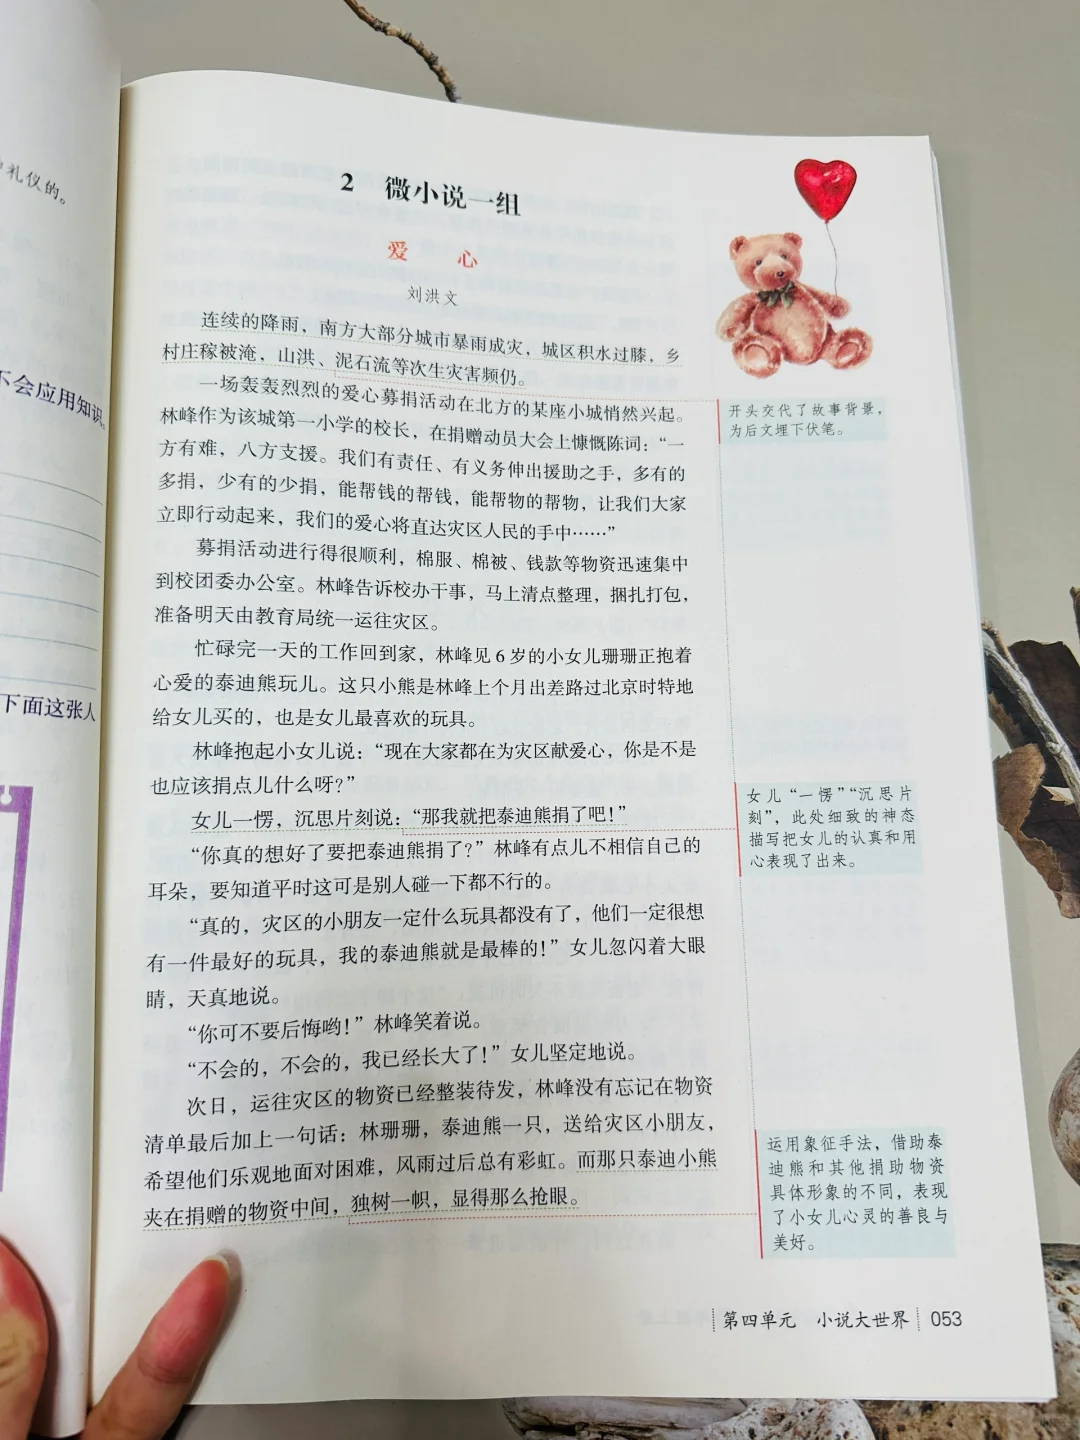 礼仪的。
不会应用知识。
下面这张人
2 微小说一组
爱 心
刘洪文
连续的降雨，南方大部分城市暴雨成灾，城区积水过膝，乡
村庄稼被淹，山洪、泥石流等次生灾害频仍。
一场轰轰烈烈的爱心募捐活动在北方的某座小城悄然兴起。
林峰作为该城第一小学的校长，在捐赠动员大会上慷慨陈词：“一
方有难，八方支援。我们有责任、有义务伸出援助之手，多有的
多捐，少有的少捐，能帮钱的帮钱，能帮物的帮物，让我们大家
立即行动起来，我们的爱心将直达灾区人民的手中……”
募捐活动进行得很顺利，棉服、棉被、钱款等物资迅速集中
到校团委办公室。林峰告诉校办干事，马上清点整理，捆扎打包，
准备明天由教育局统一运往灾区。
忙碌完一天的工作回到家，林峰见6岁的小女儿珊珊正抱着
心爱的泰迪熊玩儿。这只小熊是林峰上个月出差路过北京时特地
给女儿买的，也是女儿最喜欢的玩具。
林峰抱起小女儿说：“现在大家都在为灾区献爱心，你是不是
也应该捐点儿什么呀？”
女儿一愣，沉思片刻说：“那我就把泰迪熊捐了吧！”
“你真的想好了要把泰迪熊捐了？”林峰有点儿不相信自己的
耳朵，要知道平时这可是别人碰一下都不行的。
“真的，灾区的小朋友一定什么玩具都没有了，他们一定很想
有一件最好的玩具，我的泰迪熊就是最棒的！”女儿忽闪着大眼
睛，天真地说。
“你可不要后悔哟！”林峰笑着说。
“不会的，不会的，我已经长大了！”女儿坚定地说。
次日，运往灾区的物资已经整装待发，林峰没有忘记在物资
清单最后加上一句话：林珊珊，泰迪熊一只，送给灾区小朋友，
希望他们乐观地面对困难，风雨过后总有彩虹。而那只泰迪小熊
夹在捐赠的物资中间，独树一帜，显得那么抢眼。
开头交代了故事背景，
为后文埋下伏笔。
女儿“一愣”“沉思片
刻”，此处细致的神态
描写把女儿的认真和用
心表现了出来。
运用象征手法，借助泰
迪熊和其他捐助物资
具体形象的不同，表现
了小女儿心灵的善良与
美好。
第四单元 小说大世界 053